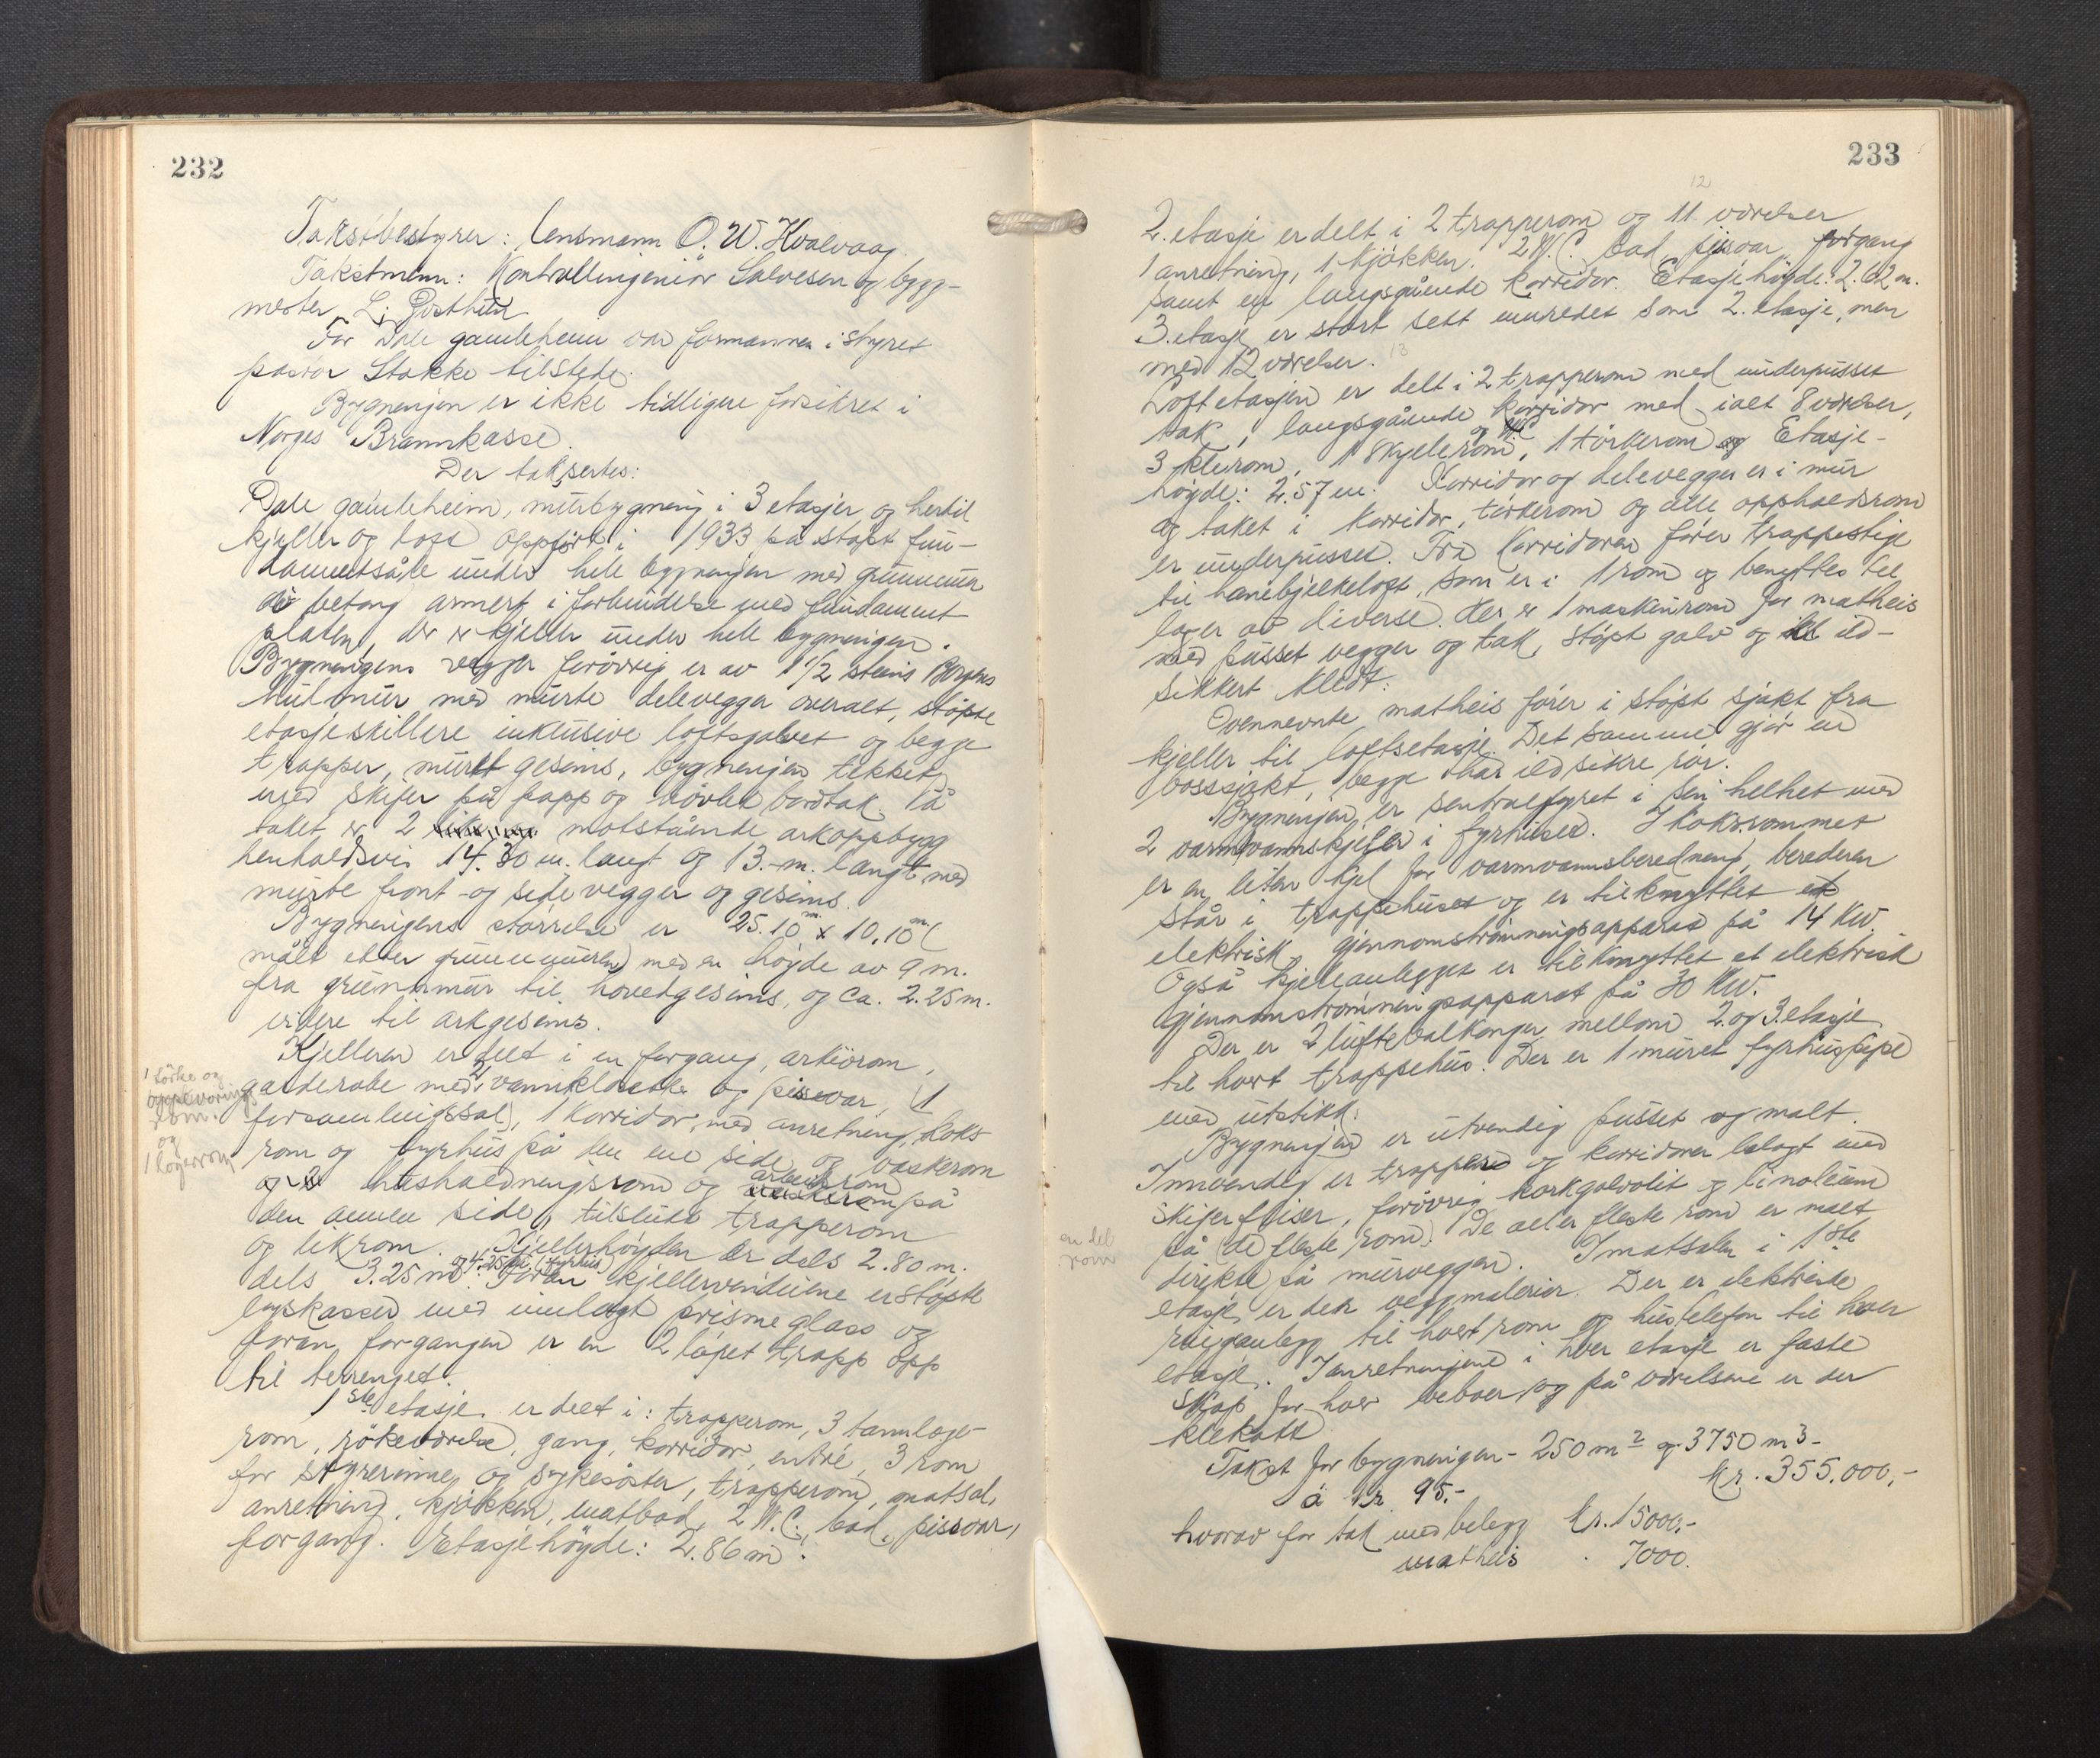 232
Takstbestyrer: lensmann O. W. Kvalvaag.
Takstmenn: Kontrollingeniør Salvesen og bygg-
mester L.
For Dale gamleheim var formannen i styret
pastor Stakke tilstede.
Bygningen er ikke tidligere forsikret i
Norges Brannkasse.
Der taksertes:
Dale gamleheim, murbygning i 3 etasjer og hertil
kjeller og loft oppført i 1933 på støpt fun-
damentsåle under hele bygningen med grunnmur
av betong armert i forbindelse med fundament
platen, der er kjeller under hele bygningen.
Bygningens vegger forøvrig er av 1 1/2 steins Bergens
hulmur med murte delevegger overalt, støpte
etasjeskillere inklusive loftsgolvet og begge
trapper, muret gesims, bygningen tekket
med skifer på papp og høvlet bordtak. På
taket er 2 motstående arkoppbygg
henholdsvis 14.30 m. langt og 13.- m. langt med
murte front- og sidevegger og gesims.
Bygningens størrelse er 25.10 m. x 10.10 m (
målt etter grunnmuren) med en høyde av 9 m.
fra grunnmur til hovedgesims, og ca. 2.25 m.
videre til arkgesims.
Kjelleren er delt i en forgang, arkivrom,
garderobe med 2 vannklosette og pissoar, 1
forsamlingssal, 1 korridor, med anretning, koks
rom og fyrhus på den ene side og vaskerom
og husholdningsrom og arbeidsrom på
den annen side, tilslutt trapperom
og likrom. Kjellerhøyden er dels 2.80 m.
dels 3.25 m og 4.25 m (fyrhus). Foran kjellervinduene er støpte
lyskasser med innlagt prismeglass og
foran forgangen er en 2 løpet trapp opp
til terrenget.
1ste etasje er delt i: trapperom, 3 tannlege-
rom, røkeværelse, gang, korridor, entré, 3 rom
for styrerinne og sykesøster, trapperom, matsal,
anretning, kjøkken, matbod, 2 W.C., bad, pissoar,
forgang. Etasjehøyde: 2.86 m.
1 tørke og
oppbevarings
rom.
og
1 lagerrom
233
12
2. etasje er delt i 2 trapperom og 11 værelser
1 anretning, 1 kjøkken. 2 W.C. bad, pissoar, forgang
samt en langsgående korridor. Etasjehøyde: 2.62 m.
3 etasje er stort sett innredet som 2. etasje, men
med 12 værelser. 13
Loftetasjen er delt i 2 trapperom med underpusset
tak, langsgående korridor med ialt 8 værelser,
3 klerom, 1 skyllerom og WC, 1 tørkerom og Etasje-
høyde: 2.57 m. Korridor og delevegger er i mur
og taket i korridor, tørkerom og alle oppholdsrom
er underpusset. Fra korridoren fører trappestige
til hanebjelkeloft, som er i 1 rom og benyttes til
lager av diverse. Her er 1 maskinrom for matheis
med pusset vegger og tak, støpt golv og ild-
sikkert kledt.
Ovennevnte matheis fører i støpt sjakt fra
kjeller til loftsetasje. Det samme gjør en
bossjakt, begge har ildsikre rør.
Bygningen er sentralfyret i sin helhet med
2 varmtvannskjeler i fyrhuset. I koksrommet
er en liten kjel for varmvannsberedning, berederen
står i trappehuset og er tilknyttet et
elektrisk gjennomstrømningsapparat på 14 Kw.
Også kjelleanlegget er tilknyttet et elektrisk
gjennomstrømningsapparat på 30 Kw.
Der er 2 luftebalkonger mellom 2. og 3. etasje
til hvert trappehus. Der er 1 muret fyrhuspipe
med utstikk.
Bygningen er utvendig pusset og malt.
Innvendig er trappene og korridorer belagt med
skiferfliser, forøvrig korkgolvolit og linoleum
på (de fleste rom). De aller fleste rom er malt
direkte på murveggen. I matsalen i 1ste
etasje er der veggmalerier. Der er elektriske
ringeanlegg til hvert rom og hustelefon til hver
etasje. I anretningene i hver etasje er faste
skap for hver beboer, og på værelsene er der
klekott.
Takst for bygningen - 250 m2 og 3750 m3 -
á kr. 95.- kr. 355.000,-
hvorav for tak med belegg kr. 15000.-
matheis 7000.
en del
rom